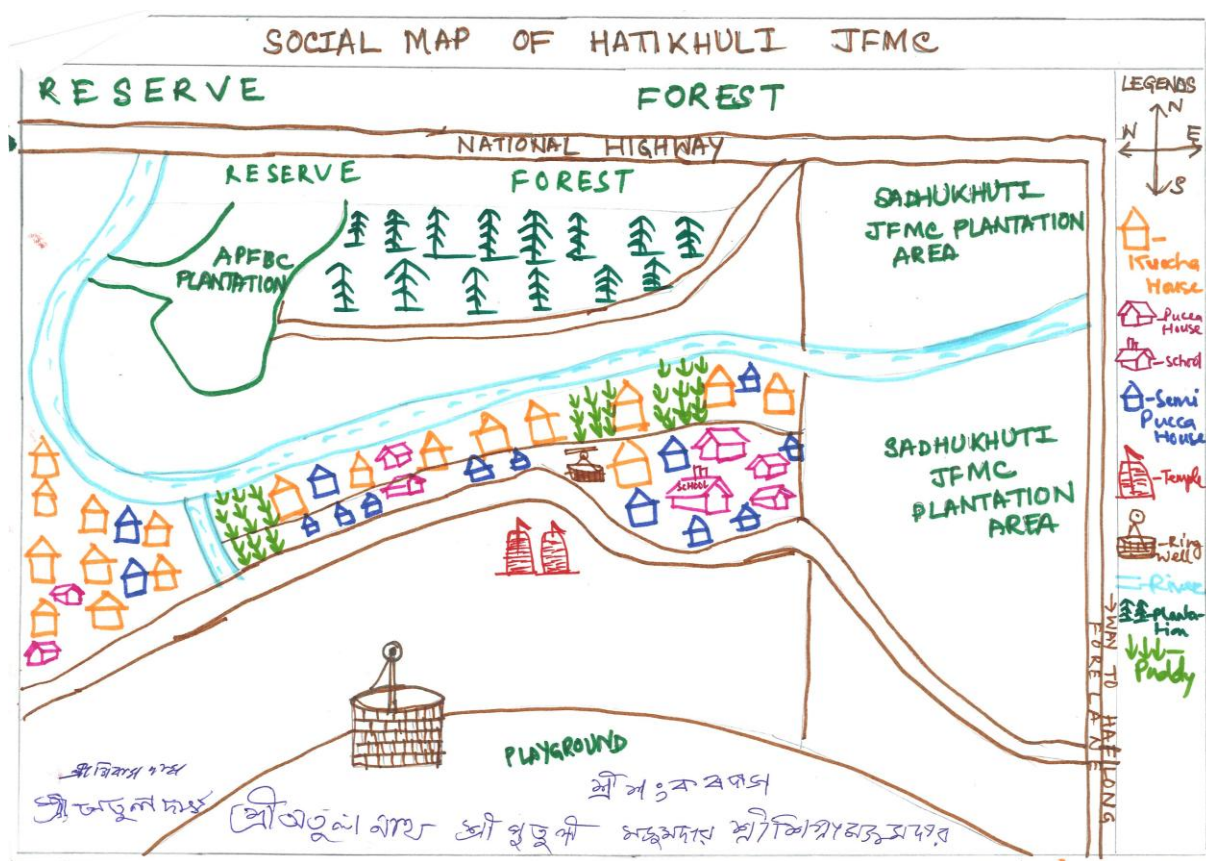 SOCIAL MAP OF HATIKHULI JFMC
RESERVE FOREST
NATIONAL HIGHWAY
RESERVE FOREST
APFBC
PLANTATION
SADHUKHUTI
JFMC PLANTATION
AREA
SADHUKHUTI
JFMC
PLANTATION
AREA
SCHOOL
PLAYGROUND
→WAY TO HAFLONG
FORELLANE
LEGENDS
N
N E
S
Kuccha
House
Pucca
House
School
Semi
Pucca
House
Temple
Ring
Well
River
Planta-
tion
Puddy
শ্রী অতুল দাস
শ্রী অতুল নাথ শ্রী পুতুলী মজুমদার